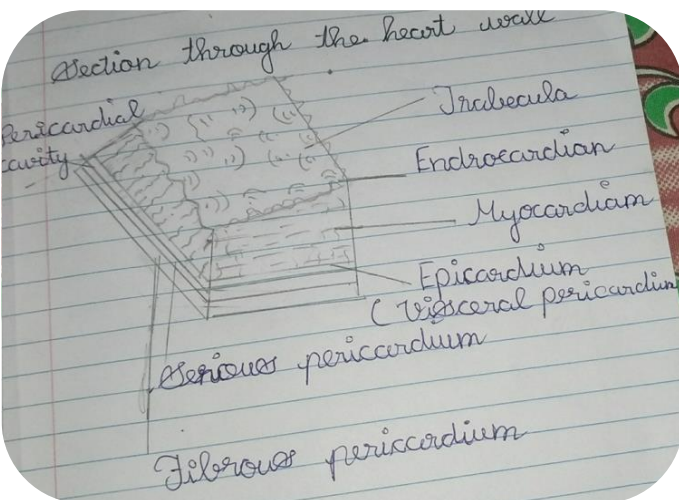 Section through the heart wall
Pericardial
cavity
Trabecula
Endrocardian
Myocardiam
Epicardium
(Visceral pericardium
Serious pericardium
Fibrous pericardium